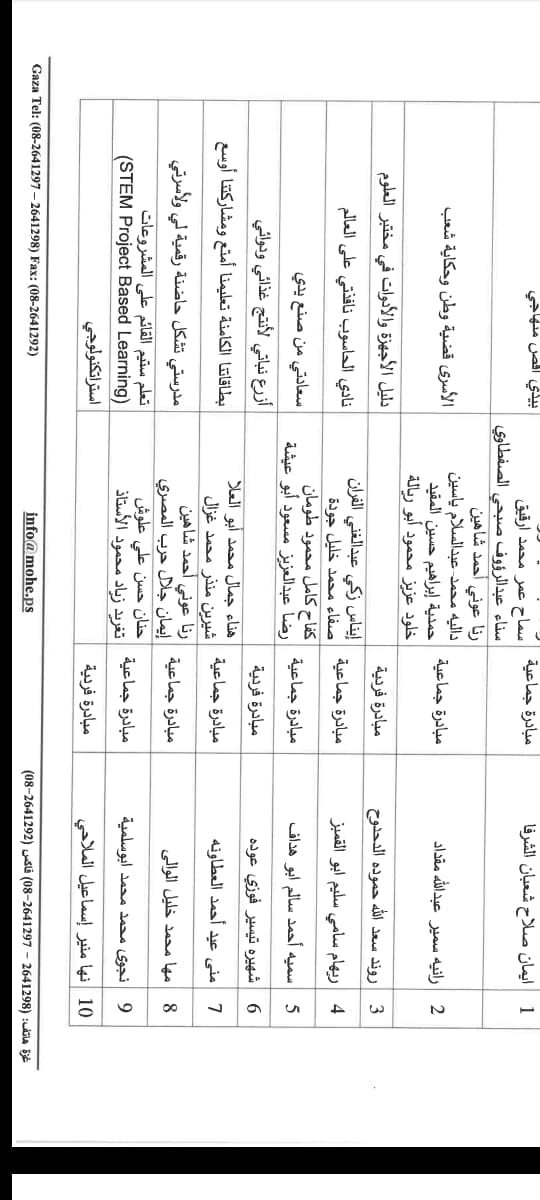 1 ايمان صلاح شعبان الشرفا مبادرة جماعية
سماح عمر محمد ارقيق
سناء عبدالرؤوف صبحي الصفطاوي
بيدي اقص منهاجي
2 رانيه سمير عبدالله مقداد مبادرة جماعية
رنا عوني أحمد شاهين
داليه محمد عبدالسلام ياسين
حمدية إبراهيم حسين المقيد
خلود عزيز محمود أبو ريالة
الأسرى قضية وطن وحكاية شعب
3 روند سعد الله حموده الدحدوح مبادرة فردية
دليل الأجهزة والأدوات في مختبر العلوم
4 ريهام سامي سليم ابو القمبز مبادرة جماعية
إيناس زكي عبدالغني الفران
صفاء محمد خليل جودة
نادي الحاسوب نافذتي على العالم
5 سميه أحمد سالم ابو هداف مبادرة جماعية
كفاح كامل محمود طومان
رضا عبدالعزيز مسعود أبو عيشة
سعادتي من صنع يدي
6 شهيره تيسير فوزي عوده مبادرة فردية
أزرع نباتي لأنتج غذائي ودوائي
7 منى عيد أحمد العطاونه مبادرة جماعية
هناء جمال محمد أبو العلا
شيرين منذر محمد غزال
بطاقاتنا الكامنة تعليمنا أمتع ومشاركتنا أوسع
8 مها محمد خليل الوالى مبادرة جماعية
رنا عوني أحمد شاهين
إيمان جلال حرب المصري
مدرستي تشكل حاضنة رقمية لي ولأسرتي
9 نجوى محمد محمد ابوسلمية مبادرة جماعية
حنان حسن علي علوش
تغريد زياد محمود الأستاذ
تعلم ستيم القائم على المشروعات
(STEM Project Based Learning)
10 نها منير إسماعيل الملاحي مبادرة فردية
استراتكنولوجي
غزة هاتف: (08-2641297 – 2641298) فاكس (08-2641292)
info@mohe.ps
Gaza Tel: (08-2641297 – 2641298) Fax: (08-2641292)